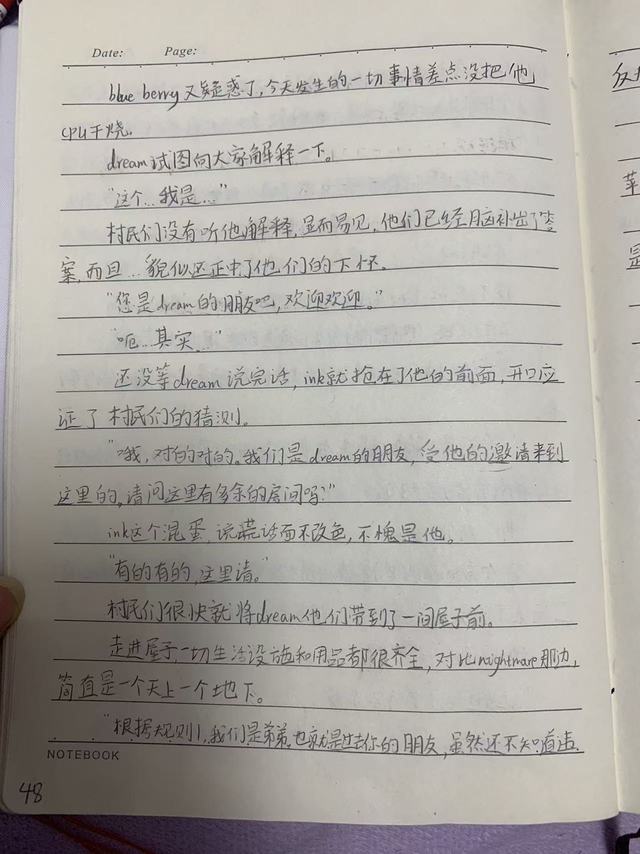 Date: Page:
blue berry又疑惑了,今天发生的一切事情差点没把他
CPU干烧。
dream试图向大家解释一下。
"这个…我是…"
村民们没有听他解释,显而易见,他们已经脑补出了答
案,而且…貌似还正中了他们的下怀。
"您是dream的朋友吧,欢迎欢迎。"
"呃…其实…"
还没等dream说完话,ink就抢在了他的前面,开口应
证了村民们的猜测。
"哦,对的对的。我们是dream的朋友,受他的邀请来到
这里的,请问这里有多余的房间吗?"
ink这个混蛋,说谎话面不改色,不愧是他。
"有的有的,这里请。"
村民们很快就将dream他们带到了一间屋子前。
走进屋子,一切生活设施和用品都很齐全,对比nightmare那边,
简直是一个天上一个地下。
"根据规则1,我们是弟弟也就是过去你的朋友,虽然还不知道违
NOTEBOOK
48
反
苹
是